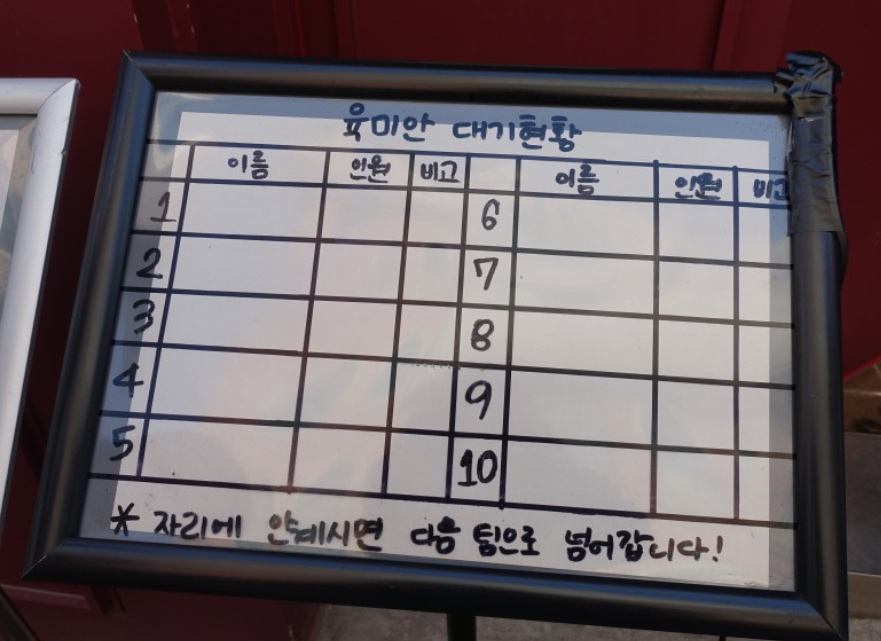 육미안 대기현황
이름 인원 비고 이름 인원 비고
1 6
2 7
3 8
4 9
5 10
* 자리에 안계시면 다음 팀으로 넘어갑니다!